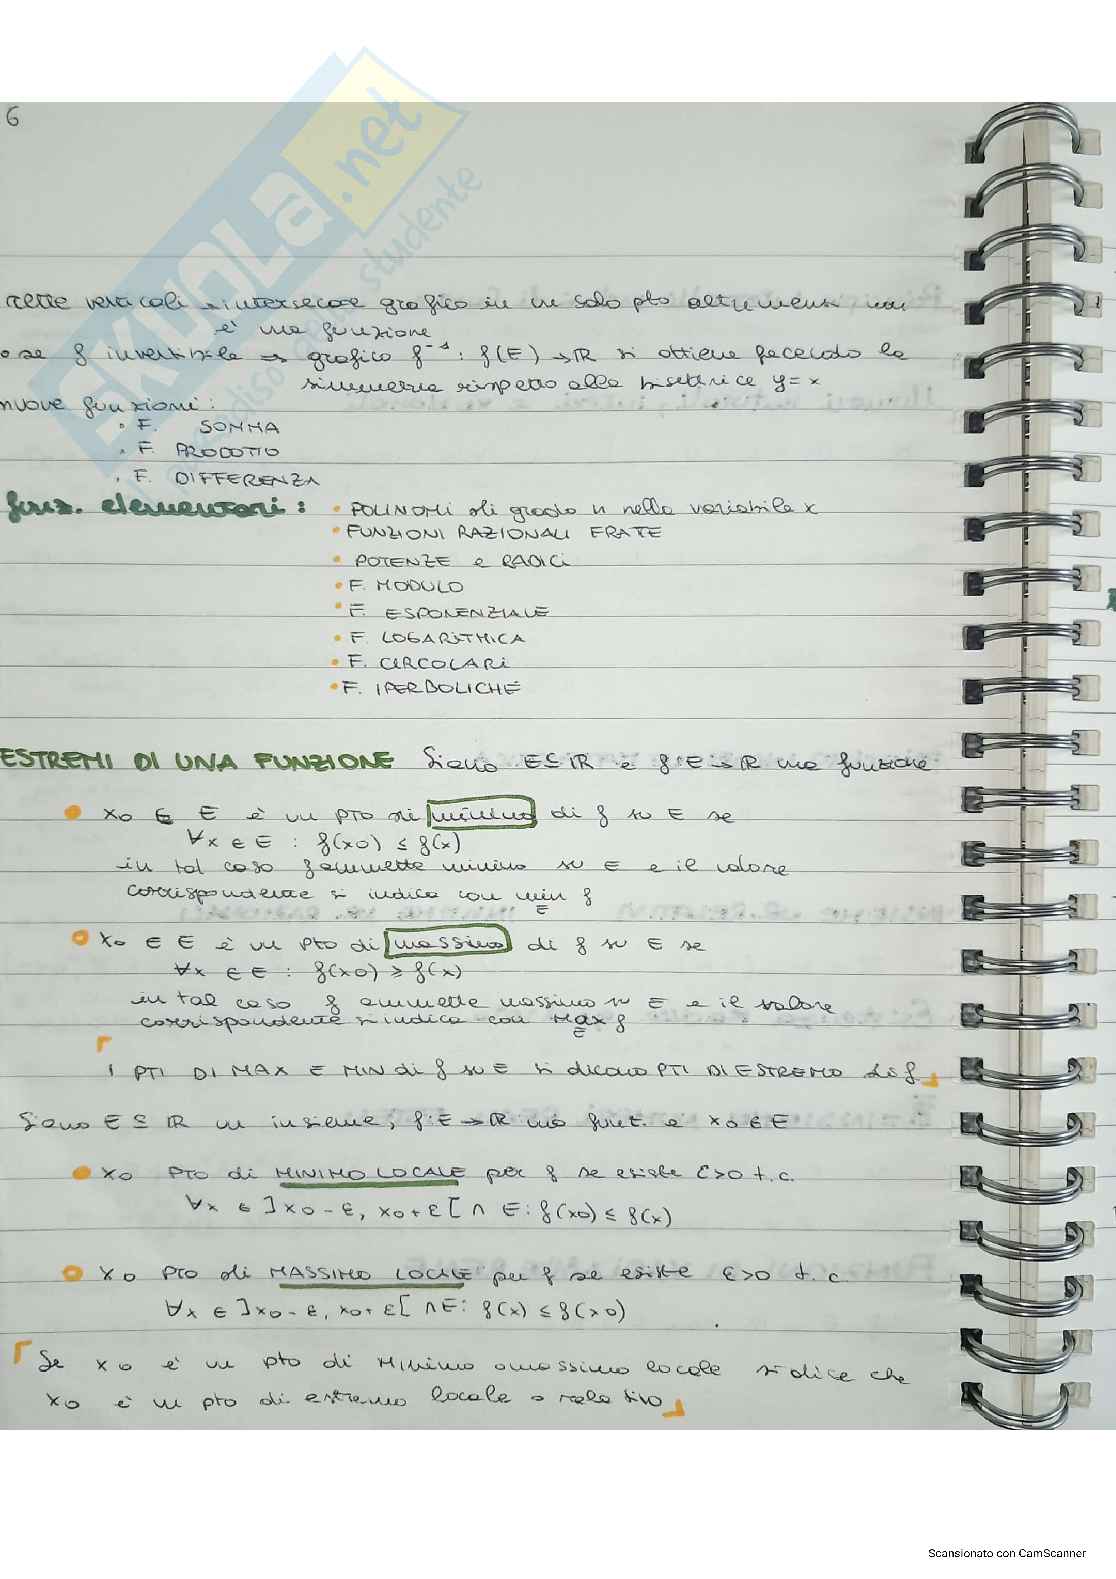 6
SKUOLA.net
paradiso dello studente
rette verticali → intersecare grafico in un solo pto altrimenti non
è una funzione
o se f invertibile → grafico f⁻¹ : f(E) → ℝ si ottiene facendo la
simmetria rispetto alla bisettrice y = x
nuove funzioni:
• F. SOMMA
• F. PRODOTTO
• F. DIFFERENZA
funz. elementari: • POLINOMI di grado n nella variabile x
• FUNZIONI RAZIONALI FRATE
• POTENZE e RADICI
• F. MODULO
• F. ESPONENZIALE
• F. LOGARITMICA
• F. CIRCOLARI
• F. IPERBOLICHE
ESTREMI DI UNA FUNZIONE Siano E ⊆ ℝ e f: E → ℝ una funzione
• x0 ∈ E è un pto di minimo di f su E se
∀x ∈ E : f(x0) ≤ f(x)
in tal caso f ammette minimo su E e il valore
corrispondente si indica con min f
E
• x0 ∈ E è un pto di massimo di f su E se
∀x ∈ E : f(x0) ≥ f(x)
in tal caso f ammette massimo su E e il valore
corrispondente si indica con Max f
E
I PTI DI MAX E MIN di f su E si dicono PTI DI ESTREMO di f
Siano E ⊆ ℝ un insieme, f: E → ℝ una funt. e x0 ∈ E
• x0 pto di MINIMO LOCALE per f se esiste ε>0 t.c.
∀x ∈ ]x0 - ε, x0 + ε[ ∩ E: f(x0) ≤ f(x)
• x0 pto di MASSIMO LOCALE per f se esiste ε>0 t.c.
∀x ∈ ]x0 - ε, x0 + ε[ ∩ E: f(x) ≤ f(x0)
Se x0 è un pto di minimo o massimo locale si dice che
x0 è un pto di estremo locale o relativo
Scansionato con CamScanner